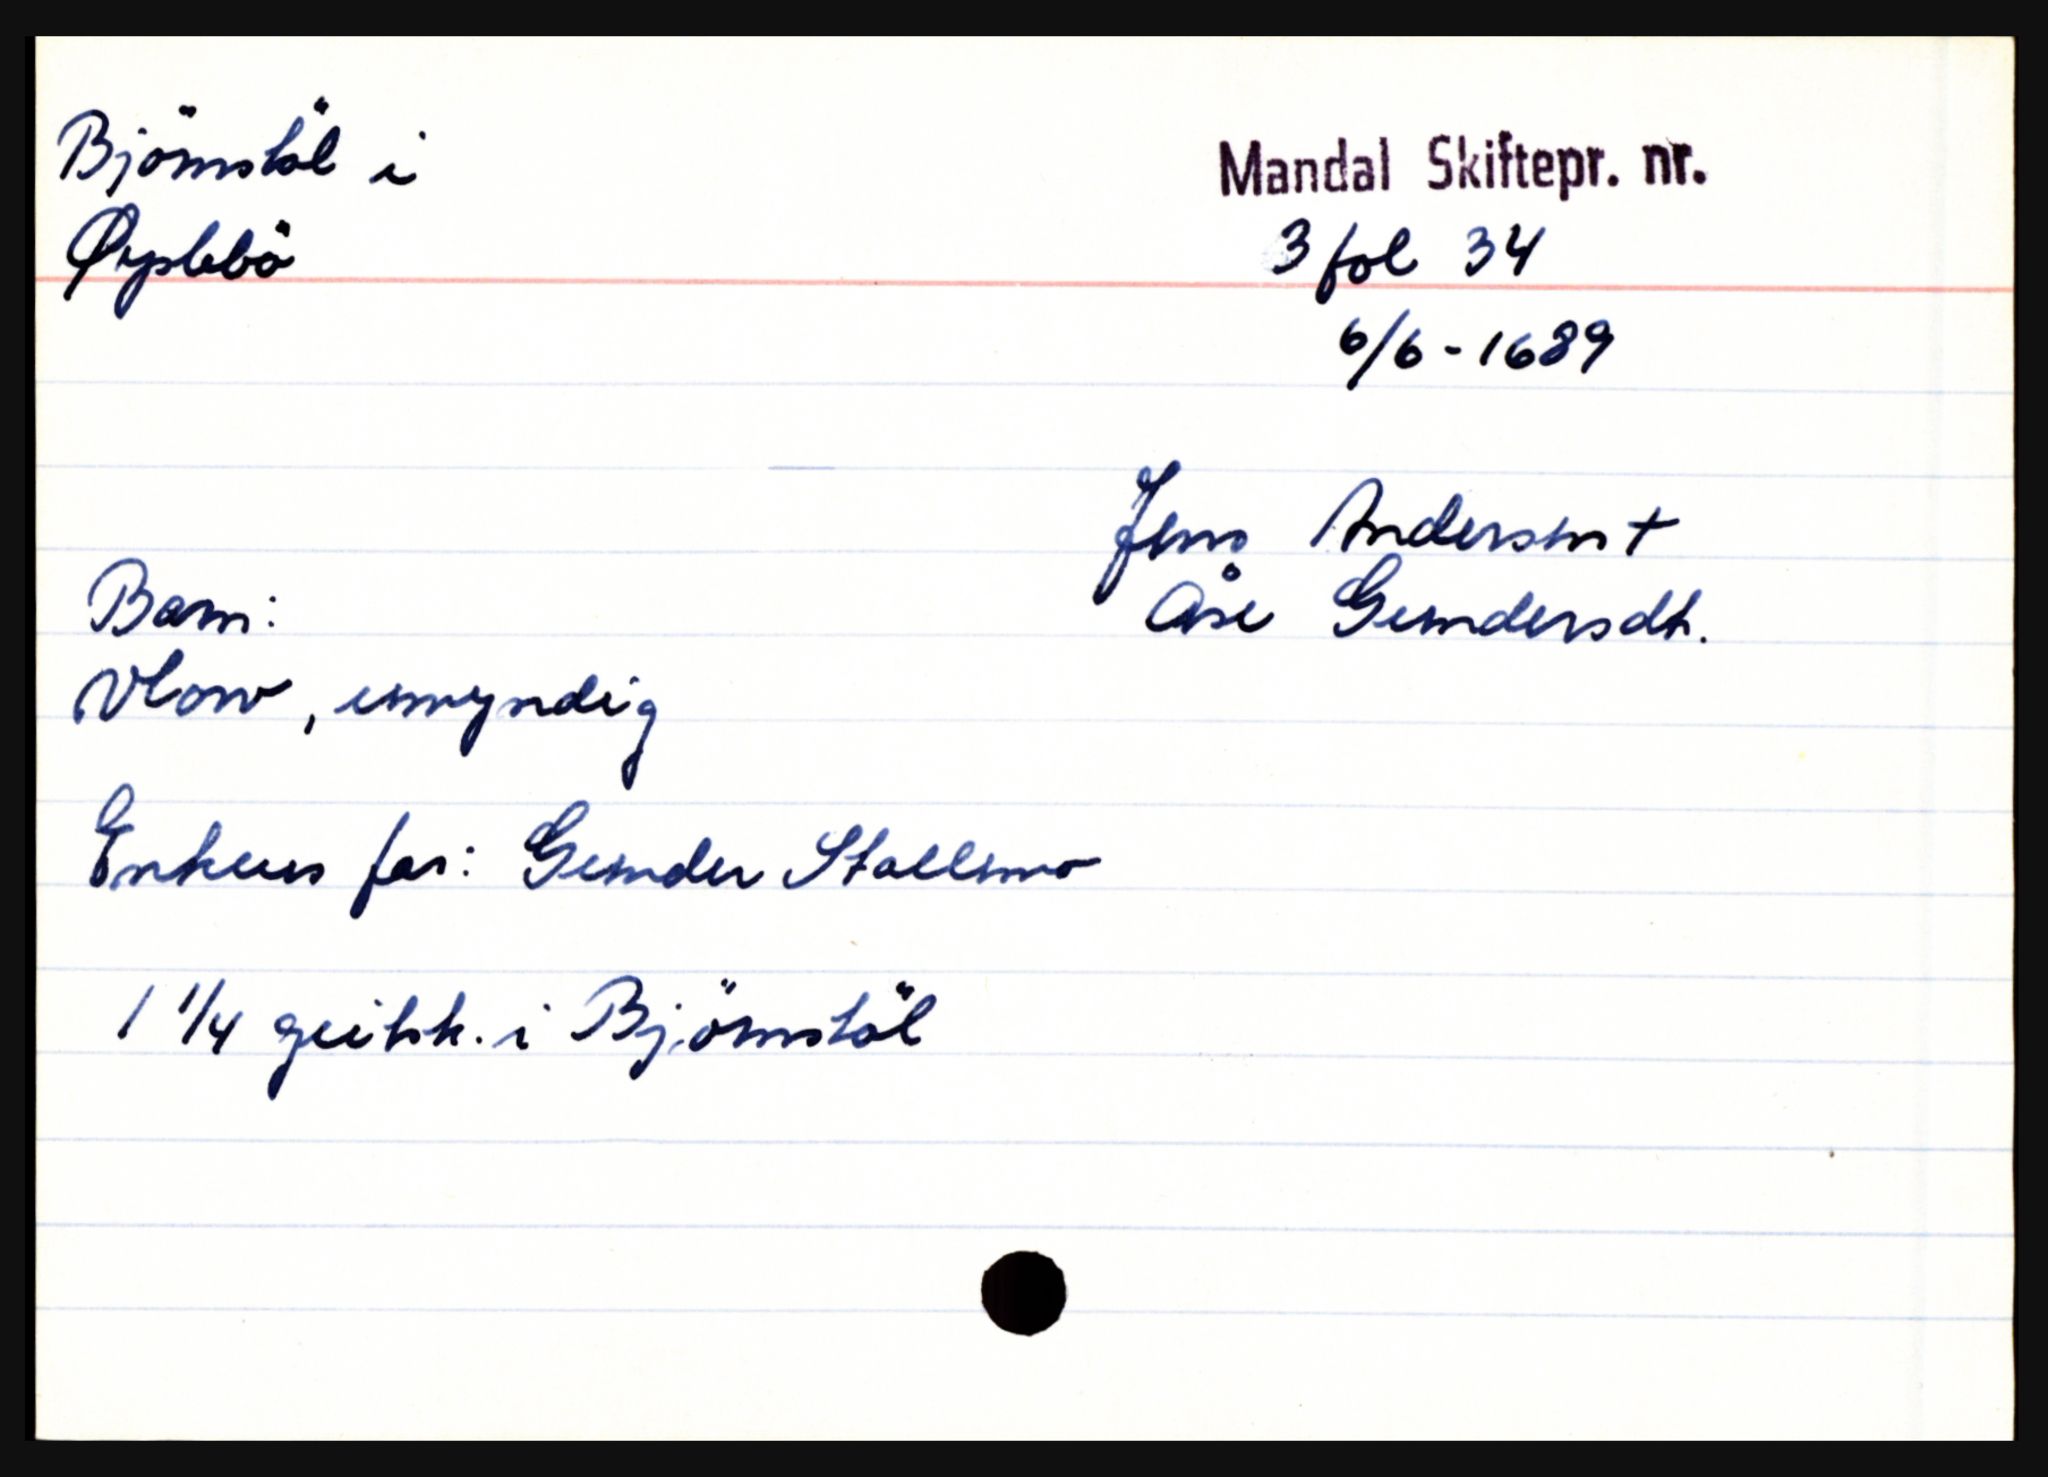 Bjørnstøl i
Øyslebö
Mandal Skiftepr. nr.
3 fol 34
6/6 - 1689
Jens Andersen +
Åse Gundersdt.
Barn:
umyndig
Enkens far: Gunder Stallemo
1 1/4 geitsk. i Björnstöl